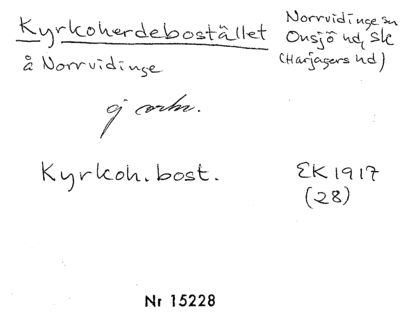 Kyrkoherdebostället
å Norrvidinge
Norrvidinge sn
Onsjö hd, Sk
(Harjagers hd)
ej
Kyrkoh. bost.
EK 1917
(28)
Nr 15228